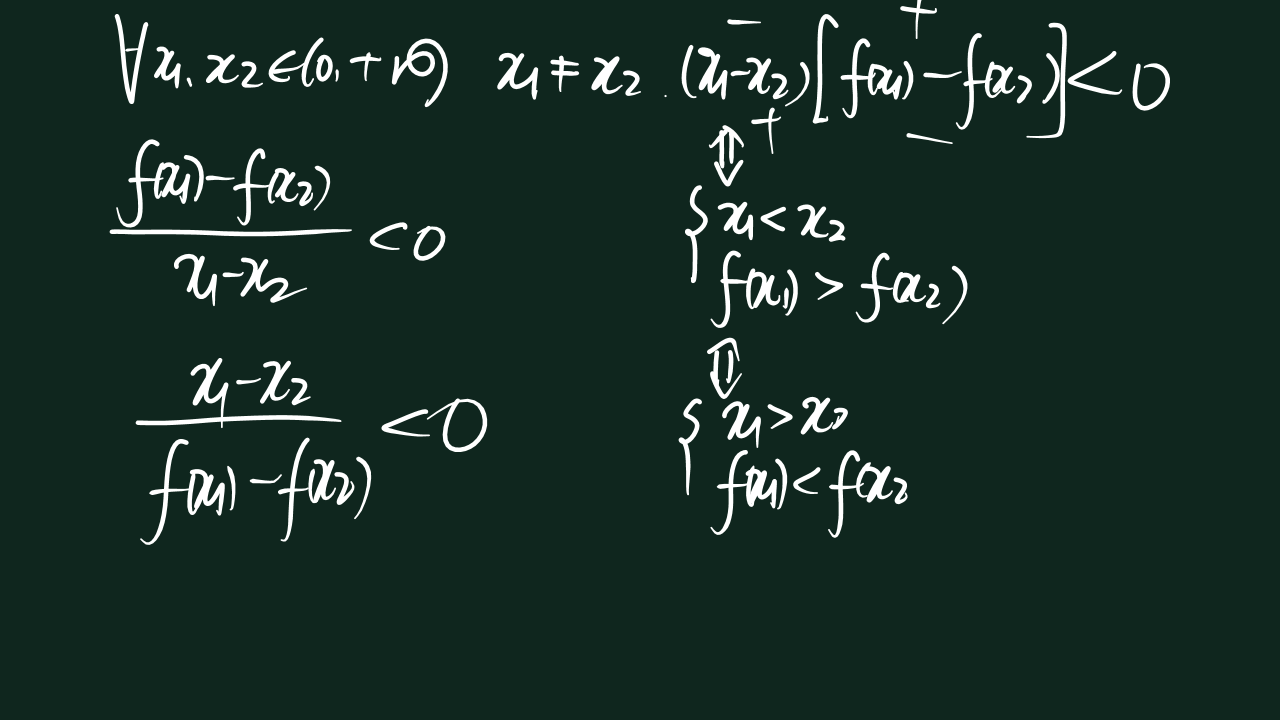 ∀x₁, x₂∈(0,+∞) x₁≠x₂. (x₁-x₂)[f(x₁)-f(x₂)]<0
- +
+ -
⇕
(f(x₁)-f(x₂))/(x₁-x₂) <0
{ x₁<x₂
f(x₁)>f(x₂)
⇕
(x₁-x₂)/(f(x₁)-f(x₂)) <0
{ x₁>x₂
f(x₁)<f(x₂